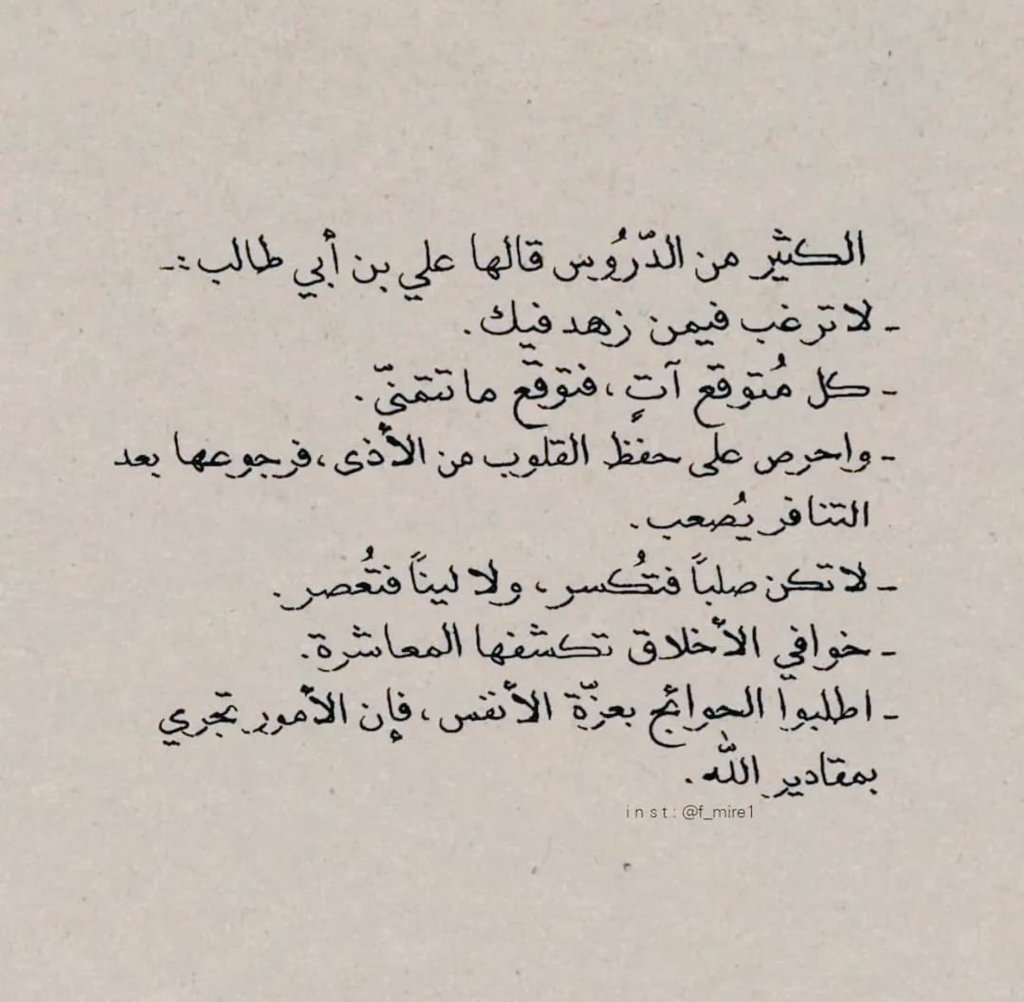 الكثير من الدّرُوس قالها علي بن أبي طالب :-
- لا ترغب فيمن زهد فيك.
- كل مُتوقع آتٍ، فتوقّع ما تتمنّي.
- واحرص على حفظ القلوب من الأذى، فرجوعها بعد
التنافر يُصعب.
- لا تكن صلباً فتُكسر، ولا ليناً فتُعصر.
- خوافي الأخلاق تكشفها المعاشرة.
- اطلبوا الحوائج بعزّة الأنفس، فإن الأمور تجري
بمقادير الله.
inst: @f_mire1